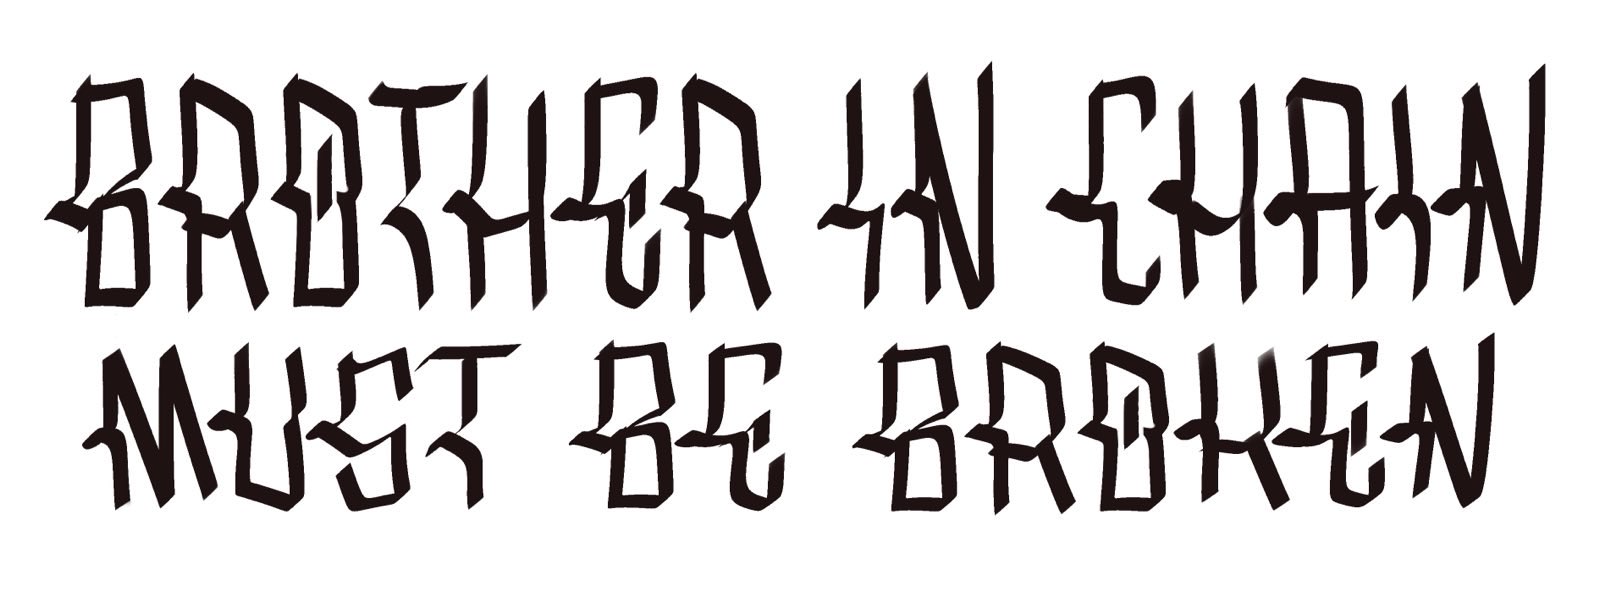 BROTHER IN CHAIN
MUST BE BROKEN